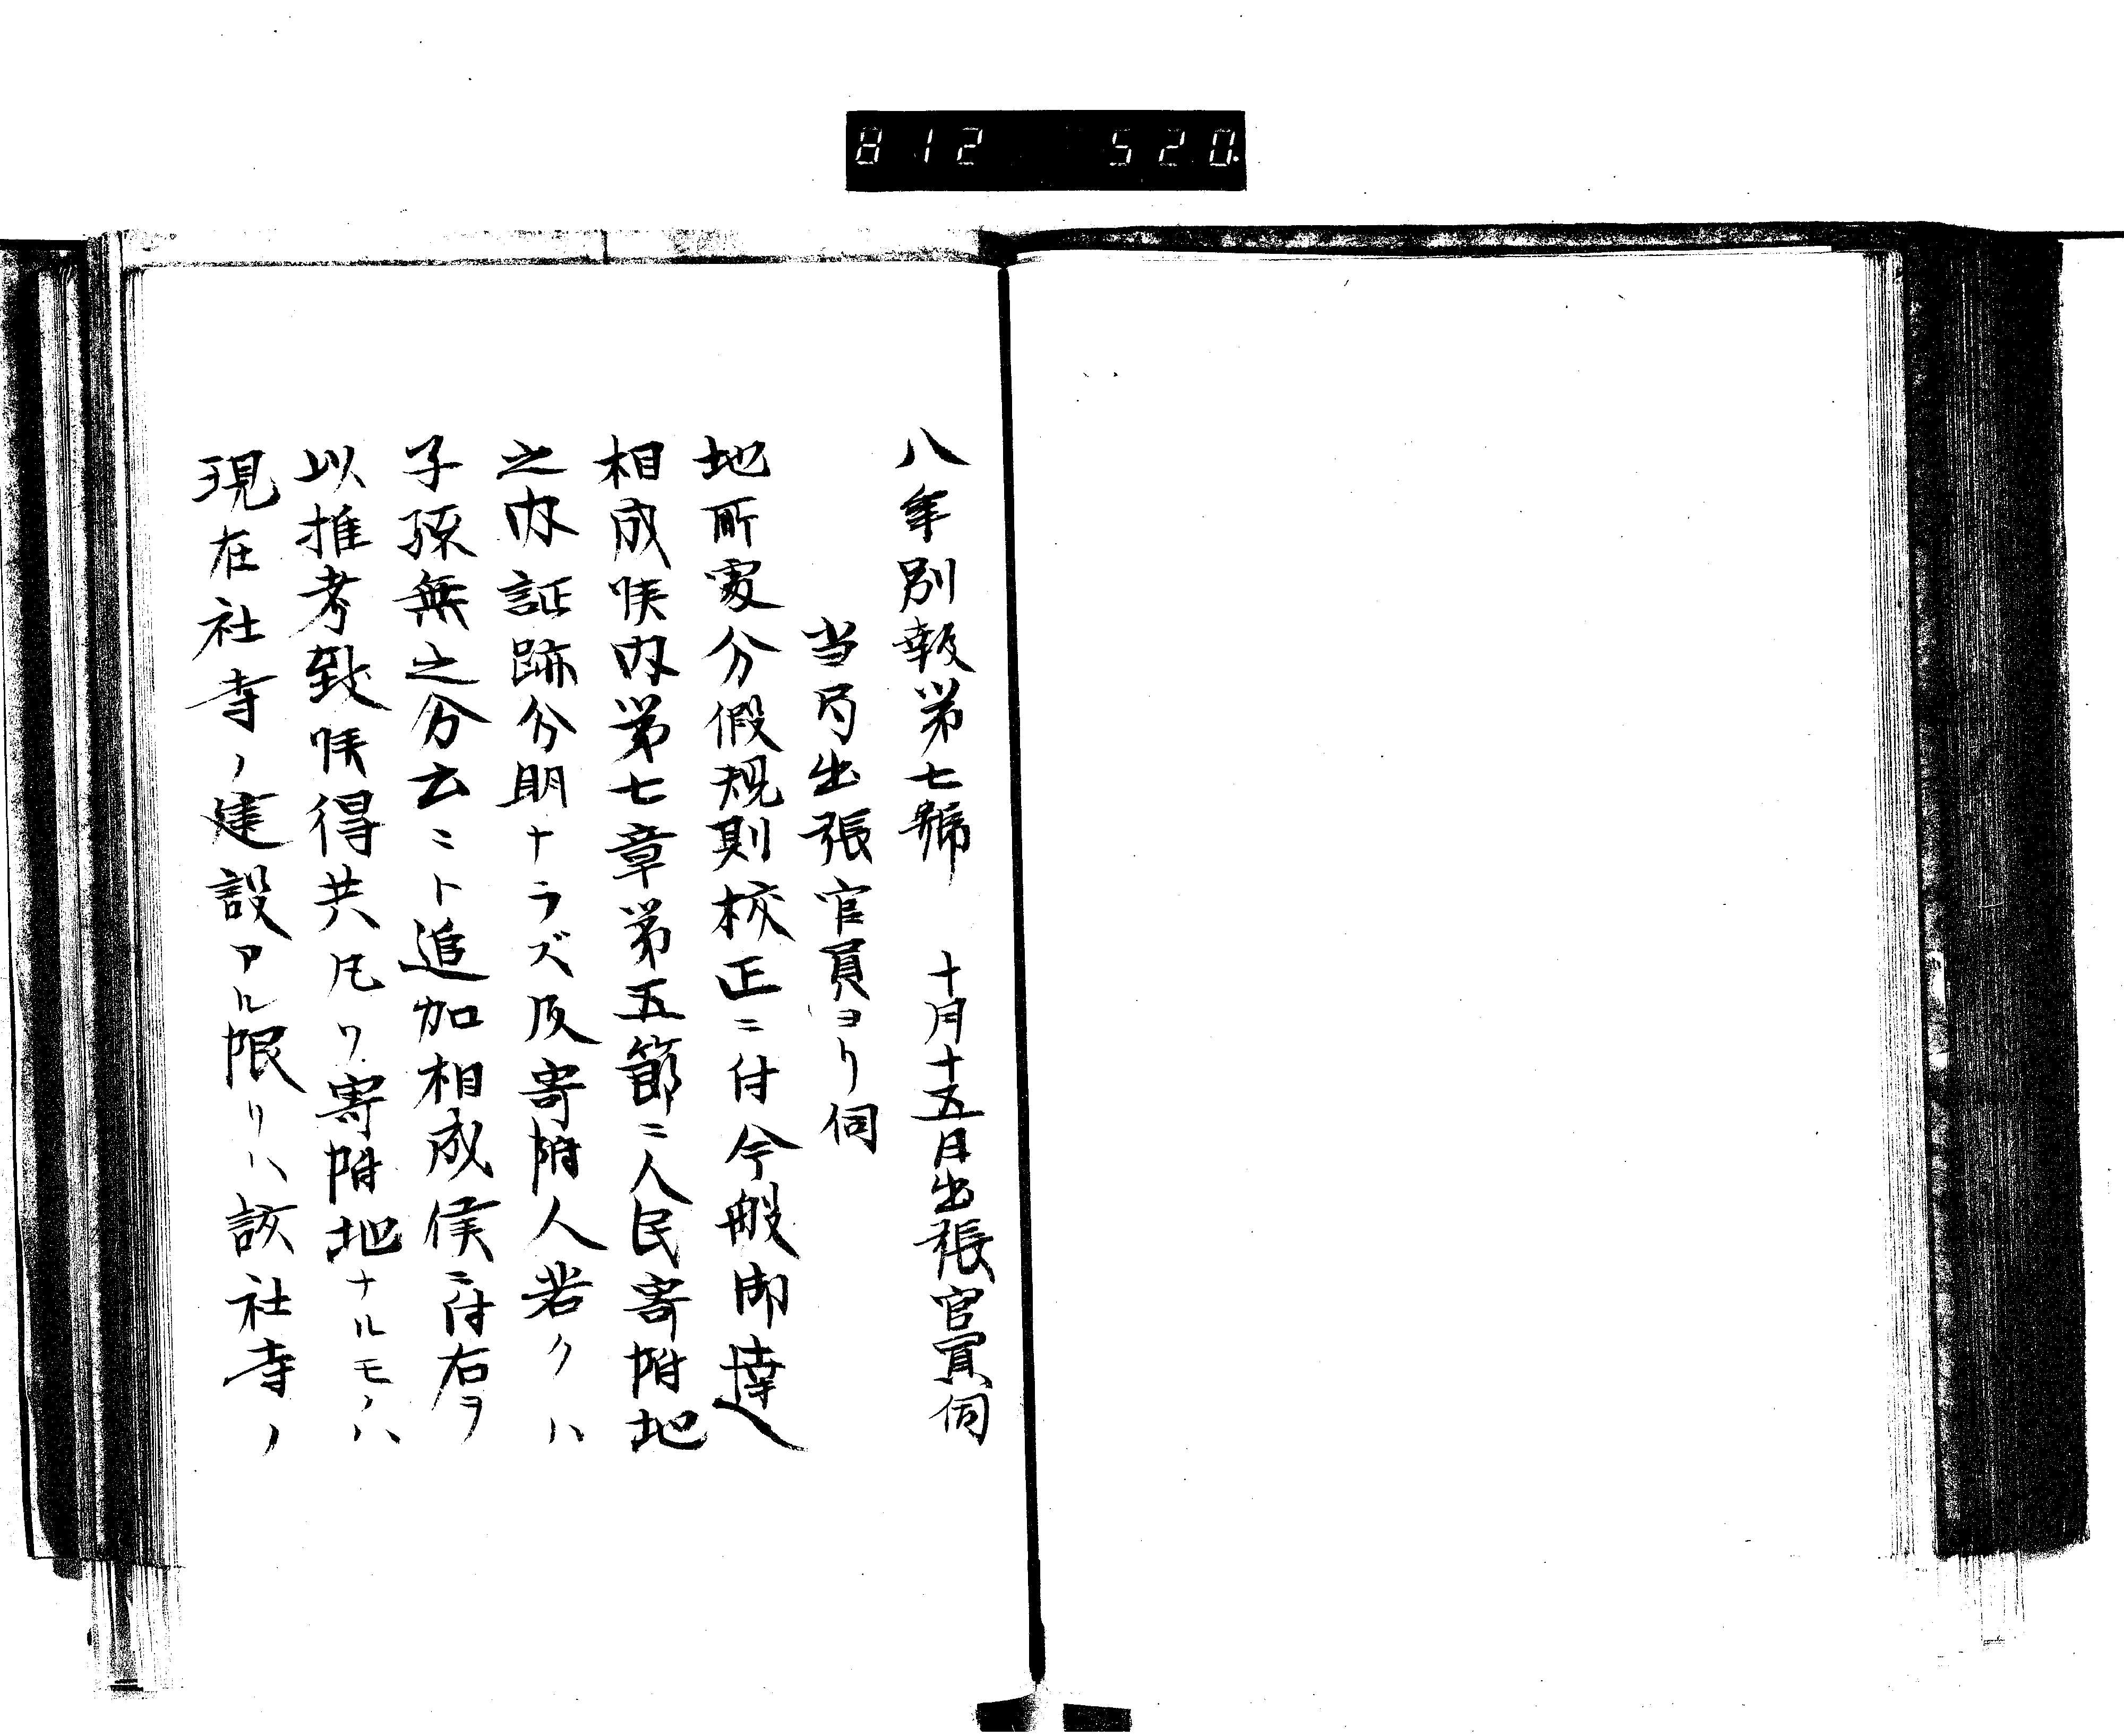 812 520
八年別報第七號 十月十五日出張官員伺
当局出張官員ヨリ伺
地所処分假規則校正ニ付今般御達
相成候内第七章第五節ニ人民寄附地
之内証跡分明ナラズ及寄附人若クハ
子孫無之分云ニト追加相成候ニ付右ヲ
以推考致候得共凡ソ寄附地ナルモノハ
現在社寺ノ建設アル限リハ該社寺ノ